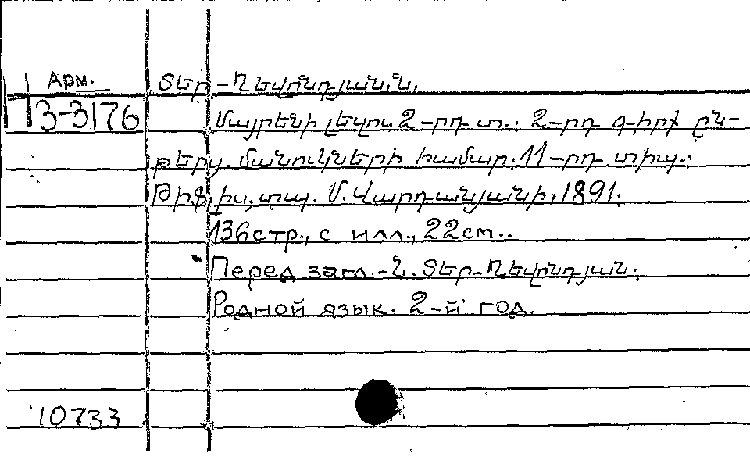 Арм.
П3-3176
Տեր-Ղեվոնդյան, Ն.
Մայրենի լեզու. 2-րդ տ.: 2-րդ գիրք ըն-
թերց. մանուկների համար. 11-րդ տիպ.:
Թիֆլիս, տպ. Մ. Վարդանյանի, 1891.
136стр., с илл., 22см..
Перед загл.-Ն. Տեր-Ղեվոնդյան.
Родной язык. 2-й год.
10733